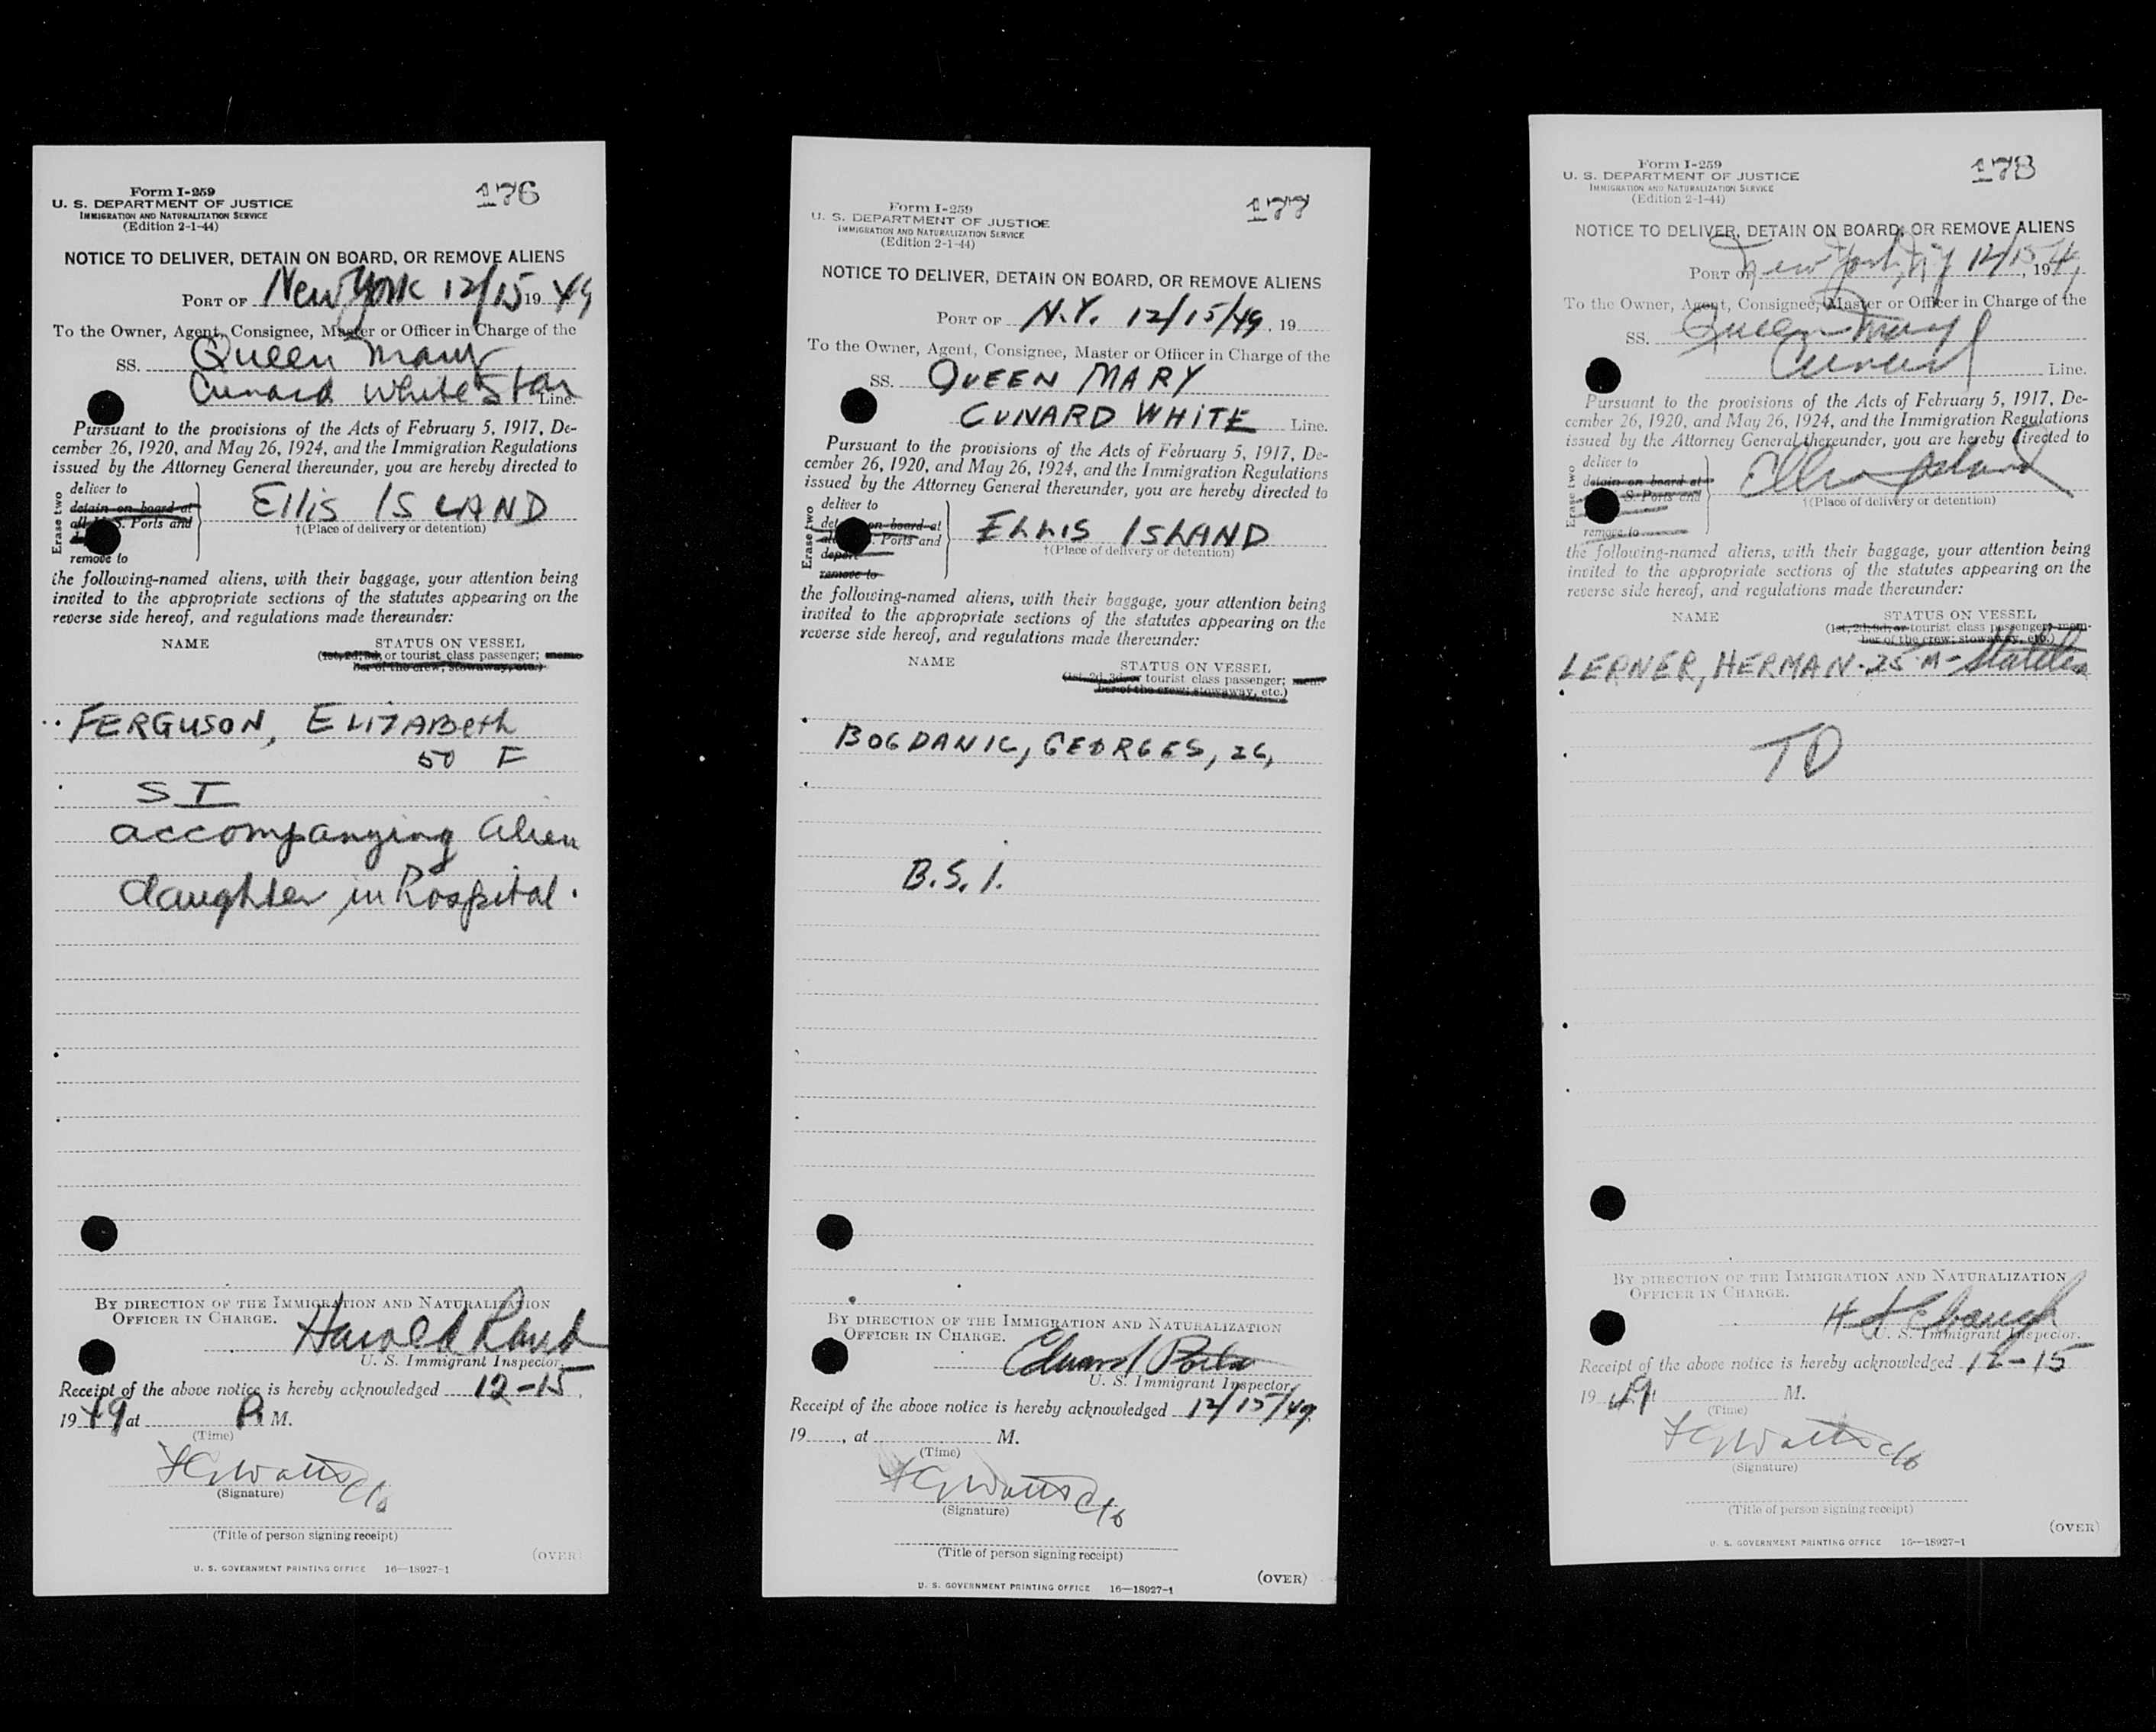 176
Form I-259
U. S. DEPARTMENT OF JUSTICE
IMMIGRATION AND NATURALIZATION SERVICE
(Edition 2-1-44)
NOTICE TO DELIVER, DETAIN ON BOARD, OR REMOVE ALIENS
PORT OF New York 12/15 19 49
To the Owner, Agent, Consignee, Master or Officer in Charge of the
SS. Queen Mary
Cunard White Star Line.
Pursuant to the provisions of the Acts of February 5, 1917, De-
cember 26, 1920, and May 26, 1924, and the Immigration Regulations
issued by the Attorney General thereunder, you are hereby directed to
Erase two
deliver to
detain on board at
all U. S. Ports and
remove to
Ellis ISLAND
†(Place of delivery or detention)
the following-named aliens, with their baggage, your attention being
invited to the appropriate sections of the statutes appearing on the
reverse side hereof, and regulations made thereunder:
NAME STATUS ON VESSEL
(1st, 2d, 3d, or tourist class passenger; mem-
ber of the crew; stowaway, etc.)
FERGUSON, ELIZABeth
50 F
SI
accompanying alien
daughter in hospital.
BY DIRECTION OF THE IMMIGRATION AND NATURALIZATION
OFFICER IN CHARGE.
Harold Rand
U. S. Immigrant Inspector.
Receipt of the above notice is hereby acknowledged 12-15,
1949 at P M.
(Time)
(Signature)
(Title of person signing receipt)
(OVER)
U. S. GOVERNMENT PRINTING OFFICE 16—18927-1
177
Form I-259
U. S. DEPARTMENT OF JUSTICE
IMMIGRATION AND NATURALIZATION SERVICE
(Edition 2-1-44)
NOTICE TO DELIVER, DETAIN ON BOARD, OR REMOVE ALIENS
PORT OF N.Y. 12/15/49, 19
To the Owner, Agent, Consignee, Master or Officer in Charge of the
SS. QUEEN MARY
CUNARD WHITE Line.
Pursuant to the provisions of the Acts of February 5, 1917, De-
cember 26, 1920, and May 26, 1924, and the Immigration Regulations
issued by the Attorney General thereunder, you are hereby directed to
Erase two
deliver to
on board at
Ports and
remove to
ELLIS ISLAND
†(Place of delivery or detention)
the following-named aliens, with their baggage, your attention being
invited to the appropriate sections of the statutes appearing on the
reverse side hereof, and regulations made thereunder:
NAME STATUS ON VESSEL
(1st, 2d, 3d, or tourist class passenger; mem-
ber of the crew; stowaway, etc.)
BOGDANIC, GEORGES, 26,
B.S.I.
BY DIRECTION OF THE IMMIGRATION AND NATURALIZATION
OFFICER IN CHARGE.
Edward
U. S. Immigrant Inspector.
Receipt of the above notice is hereby acknowledged 12/15/49
19 , at M.
(Time)
(Signature)
(Title of person signing receipt)
(OVER)
U. S. GOVERNMENT PRINTING OFFICE 16—18927-1
178
Form I-259
U. S. DEPARTMENT OF JUSTICE
IMMIGRATION AND NATURALIZATION SERVICE
(Edition 2-1-44)
NOTICE TO DELIVER, DETAIN ON BOARD, OR REMOVE ALIENS
PORT OF New York, NY 12/15, 1949
To the Owner, Agent, Consignee, Master or Officer in Charge of the
SS. Queen Mary
Cunard Line.
Pursuant to the provisions of the Acts of February 5, 1917, De-
cember 26, 1920, and May 26, 1924, and the Immigration Regulations
issued by the Attorney General thereunder, you are hereby directed to
Erase two
deliver to
detain on board at
S. Ports and
remove to
Ellis Island
†(Place of delivery or detention)
the following-named aliens, with their baggage, your attention being
invited to the appropriate sections of the statutes appearing on the
reverse side hereof, and regulations made thereunder:
NAME STATUS ON VESSEL
(1st, 2d, 3d, or tourist class passenger; mem-
ber of the crew; stowaway, etc.)
LERNER, HERMAN - 25 M - Stateless
TD
BY DIRECTION OF THE IMMIGRATION AND NATURALIZATION
OFFICER IN CHARGE.
U. S. Immigrant Inspector.
Receipt of the above notice is hereby acknowledged 12-15
1949 M.
(Time)
(Signature)
(Title of person signing receipt)
(OVER)
U. S. GOVERNMENT PRINTING OFFICE 16—18927-1